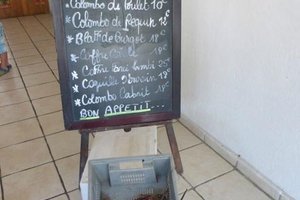 *Colombo de Poulet 10€
*Colombo de Requin 18€
*Blaff de Burgot 18€
*Coffre 18€
*Coffre 25€
*Coquille 18€
*Colombo Cabrit 18€
BON APPETIT...